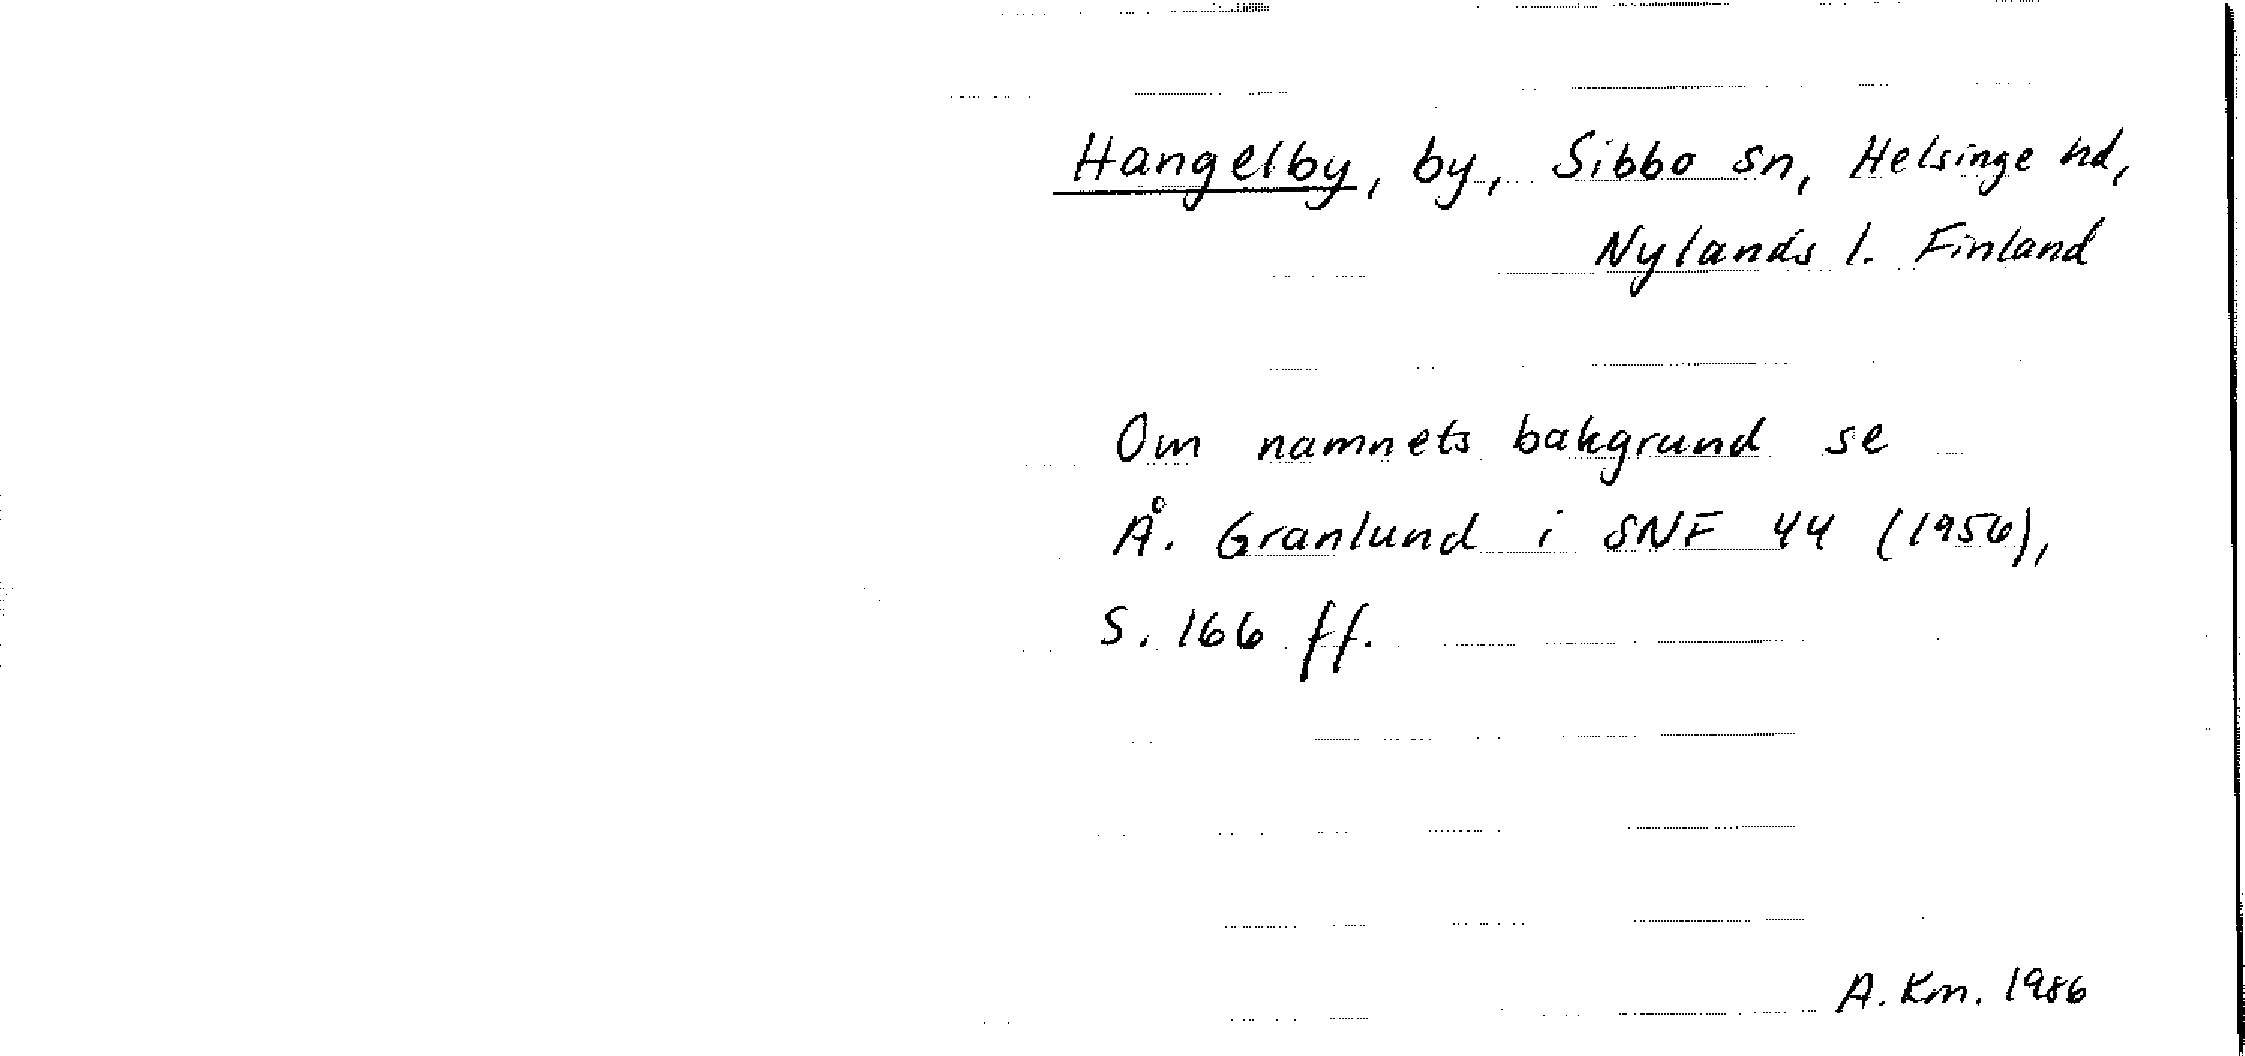 Hangelby, by, Sibbo sn, Helsinge hd,
Nylands l. Finland
Om namnets bakgrund se
Å. Granlund i SNF 44 (1956),
S. 166 ff.
A. Km. 1986